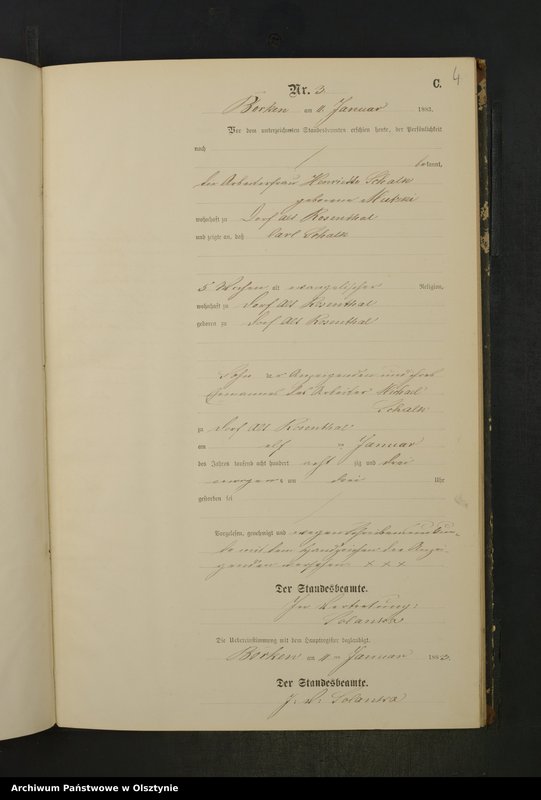 4
C.
Nr. 3.
Borken am 11. Januar 1883.
Vor dem unterzeichneten Standesbeamten erschien heute, der Persönlichkeit
nach
bekannt,
die Arbeiterfrau Henriette Schalk
geborene
wohnhaft zu Dorf Alt Rosenthal
und zeigte an, daß Carl Schalk
5 Wochen alt evangelischer Religion,
wohnhaft zu Dorf Alt Rosenthal
geboren zu Dorf Alt Rosenthal
Sohn der Anzeigenden und ihres
Ehemannes des Arbeiter Michael
Schalk
zu Dorf Alt Rosenthal
am elf ten Januar
des Jahres tausend acht hundert acht zig und drei
Morgens um drei Uhr
gestorben sei
Vorgelesen, genehmigt und wegen Schreibensunkun-
de mit dem Handzeichen der Anzei-
genden versehen + + +
Der Standesbeamte.
In Vertretung:
Solanka
Die Uebereinstimmung mit dem Hauptregister beglaubigt.
Borken am 11 ten Januar 1883.
Der Standesbeamte.
J. V. Solanka
Archiwum Państwowe w Olsztynie